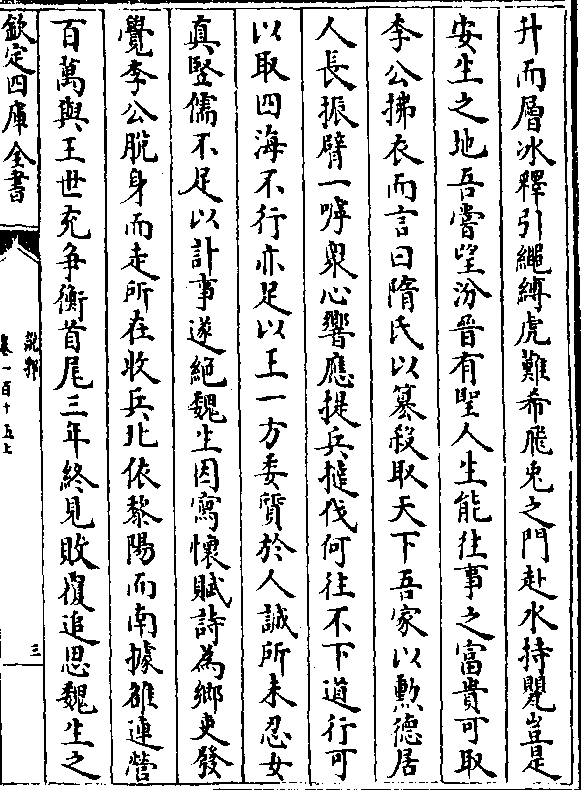 升而層冰釋引繩縛虎難希飛兎之門赴水持甖豈是
安生之地吾嘗望汾晉有聖人生能往事之富貴可取
李公拂衣而言曰隋氏以簒殺取天下吾家以勲德居
人長振臂一呼衆心響應提兵撻伐何往不下道行可
以取四海不行亦足以王一方委質於人誠所未忍女
真竪儒不足以計事遂絶魏生因寓懷賦詩為鄉吏發
覺李公脫身而走所在收兵北依黎陽而南據雒連營
百萬與王世充争衡首尾三年終見敗覆追思魏生之
欽定四庫全書
說郛
卷一百十五上
三